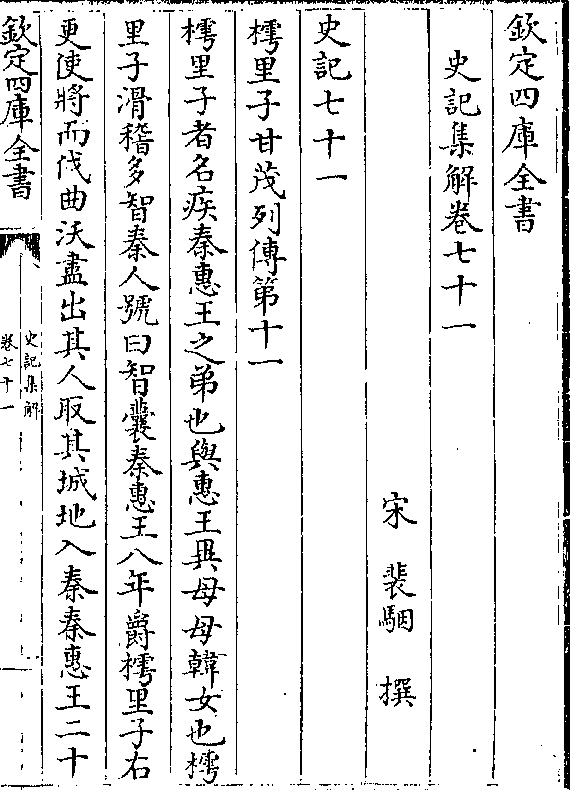 欽定四庫全書
史記集解卷七十一
宋 裴駰 撰
史記七十一
樗里子甘茂列傳第十一
樗里子者名疾秦惠王之弟也與惠王異母母韓女也樗
里子滑稽多智秦人號曰智囊秦惠王八年爵樗里子右
更使將而伐曲沃盡出其人取其城地入秦秦惠王二十
欽定四庫全書
史記集解
卷七十一